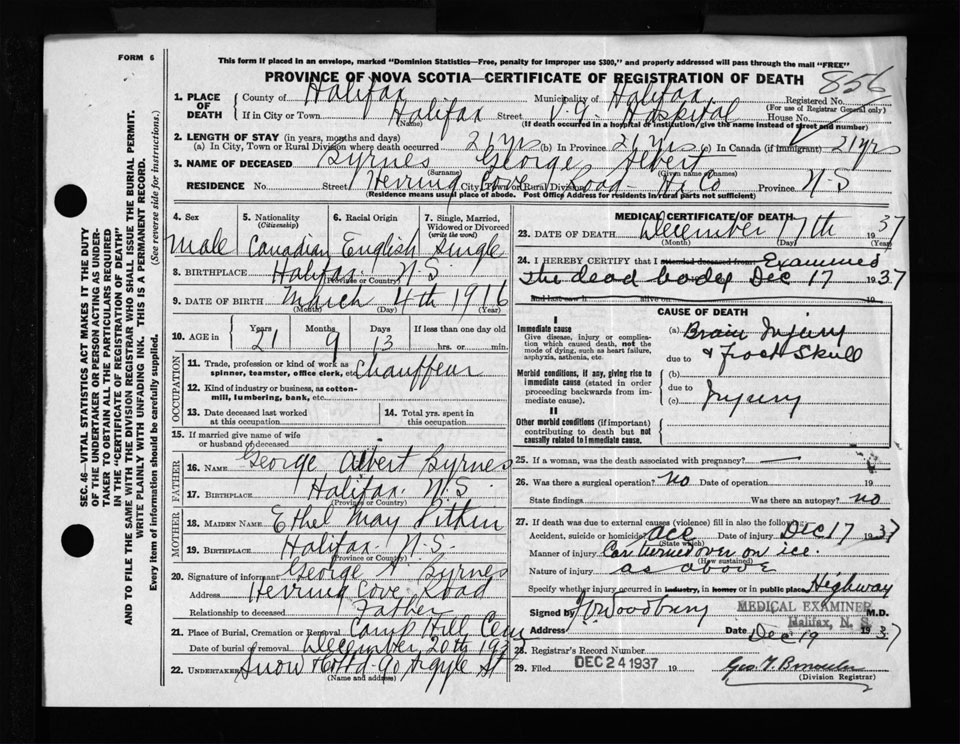 FORM 6
This form if placed in an envelope, marked "Dominion Statistics—Free, penalty for improper use $300," and properly addressed will pass through the mail "FREE"
PROVINCE OF NOVA SCOTIA—CERTIFICATE OF REGISTRATION OF DEATH
856
1. PLACE OF DEATH
County of Halifax Municipality of Halifax Registered No.
(For use of Registrar General only)
If in City or Town Halifax Street V.G. Hospital House No.
(Name) (If death occurred in a hospital or institution/give the name instead of street and number)
2. LENGTH OF STAY (in years, months and days)
(a) In City, Town or Rural Division where death occurred 21 yrs (b) In Province 21 yrs (c) In Canada (if immigrant) 21 yrs
3. NAME OF DECEASED Byrnes George Albert
(Surname) (Given name or names)
RESIDENCE No. Street Herring Cove Road Hx Co City, Town or Rural Division Province N-S
(Residence means usual place of abode. Post Office Address for residents in rural parts not sufficient)
4. Sex 5. Nationality (Citizenship) 6. Racial Origin 7. Single, Married, Widowed or Divorced (write the word)
Male Canadian English Single
8. BIRTHPLACE Halifax N.S.
(Province or Country)
9. DATE OF BIRTH March 4th 1916
(Month) (Day) (Year)
10. AGE in Years Months Days If less than one day old
21 9 13 hrs. or min.
OCCUPATION
11. Trade, profession or kind of work as spinner, teamster, office clerk, etc. Chauffeur
12. Kind of industry or business, as cotton-mill, lumbering, bank, etc.
13. Date deceased last worked at this occupation 14. Total yrs. spent in this occupation
15. If married give name of wife or husband of deceased
FATHER
16. NAME George Albert Byrnes
17. BIRTHPLACE Halifax N.S.
(Province or Country)
MOTHER
18. MAIDEN NAME Ethel May Pitkin
19. BIRTHPLACE Halifax N.S.
(Province or Country)
20. Signature of informant George A. Byrnes
Address Herring Cove Road
Relationship to deceased Father
21. Place of Burial, Cremation or Removal Camp Hill Cem
Date of burial or removal December 20th 193
22. UNDERTAKER Snow 90 Argyle St
(Name and address)
MEDICAL CERTIFICATE OF DEATH
23. DATE OF DEATH December 17th 1937
(Month) (Day) (Year)
24. I HEREBY CERTIFY that I attended deceased from Examined
the dead body Dec 17 1937
and last saw h alive on 19
CAUSE OF DEATH
I
Immediate cause
Give disease, injury or complication which caused death, not the mode of dying, such as heart failure, asphyxia, asthenia, etc.
(a) Brain Injury
due to & fract Skull
Morbid conditions, if any, giving rise to immediate cause (stated in order proceeding backwards from immediate cause).
(b)
due to
(c) Injury
II
Other morbid conditions (if important) contributing to death but not causally related to immediate cause.
25. If a woman, was the death associated with pregnancy? —
26. Was there a surgical operation? no Date of operation
State findings Was there an autopsy? no
27. If death was due to external causes (violence) fill in also the following:
Accident, suicide or homicide? acc Date of injury Dec 17 1937
(State which)
Manner of injury Car turned over on ice.
(How sustained)
Nature of injury as above
Specify whether injury occurred in industry, in home or in public place Highway
Signed by Woodbury M.D.
MEDICAL EXAMINER
Halifax, N. S.
Address Date Dec 19 1937
28. Registrar's Record Number
29. Filed DEC 24 1937 19
(Division Registrar)
SEC. 46—VITAL STATISTICS ACT MAKES IT THE DUTY
OF THE UNDERTAKER OR PERSON ACTING AS UNDER-
TAKER TO OBTAIN ALL THE PARTICULARS REQUIRED
IN THE "CERTIFICATE OF REGISTRATION OF DEATH"
AND TO FILE THE SAME WITH THE DIVISION REGISTRAR WHO SHALL ISSUE THE BURIAL PERMIT.
WRITE PLAINLY WITH UNFADING INK. THIS IS A PERMANENT RECORD.
Every item of information should be carefully supplied. (See reverse side for instructions.)